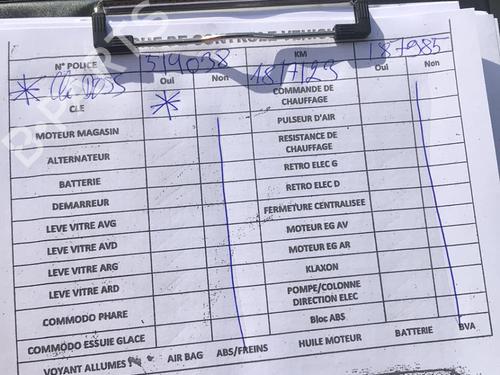 CONTROLE VEHIC
N° POLICE 519098 KM 187985
Oui Non 18/7/23 Oui Non
CLE COMMANDE DE CHAUFFAGE
MOTEUR MAGASIN PULSEUR D'AIR
ALTERNATEUR RESISTANCE DE CHAUFFAGE
BATTERIE RETRO ELEC G
DEMARREUR RETRO ELEC D
LEVE VITRE AVG FERMETURE CENTRALISEE
LEVE VITRE AVD MOTEUR EG AV
LEVE VITRE ARG MOTEUR EG AR
LEVE VITRE ARD KLAXON
COMMODO PHARE POMPE/COLONNE DIRECTION ELEC
COMMODO ESSUIE GLACE Bloc ABS
VOYANT ALLUMES AIR BAG ABS/FREINS HUILE MOTEUR BATTERIE BVA